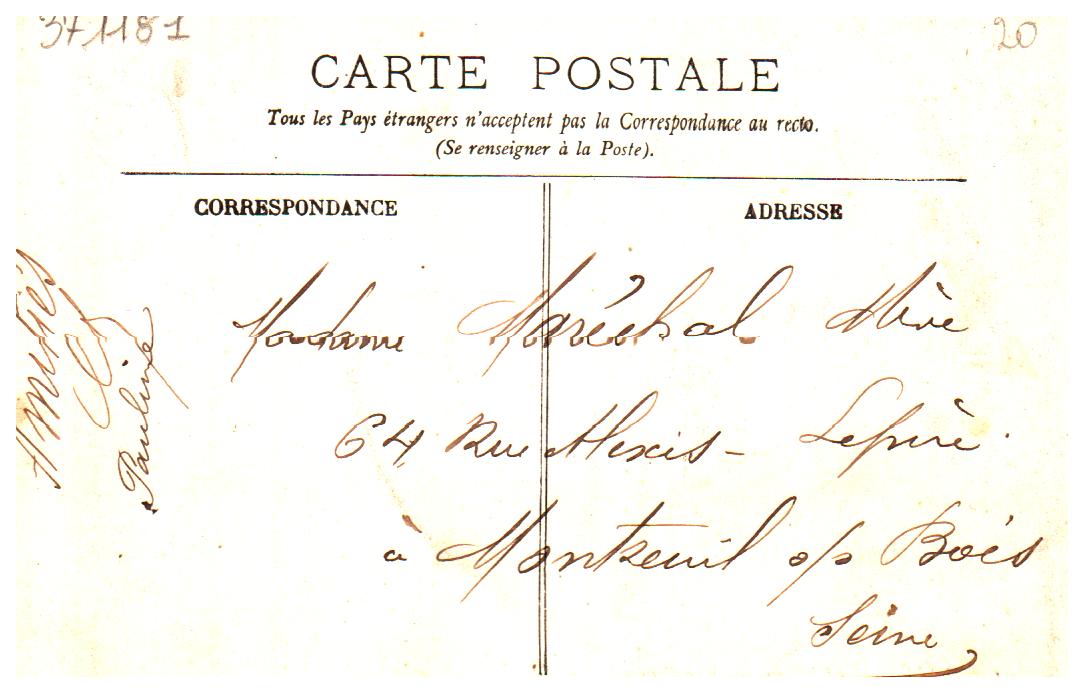 371181
20
CARTE POSTALE
Tous les Pays étrangers n'acceptent pas la Correspondance au recto.
(Se renseigner à la Poste).
CORRESPONDANCE
ADRESSE
Amitiés
Pauline
Madame Maréchal Mère
64 Rue Alexis - Lepère
à Montreuil s/s Bois
Seine